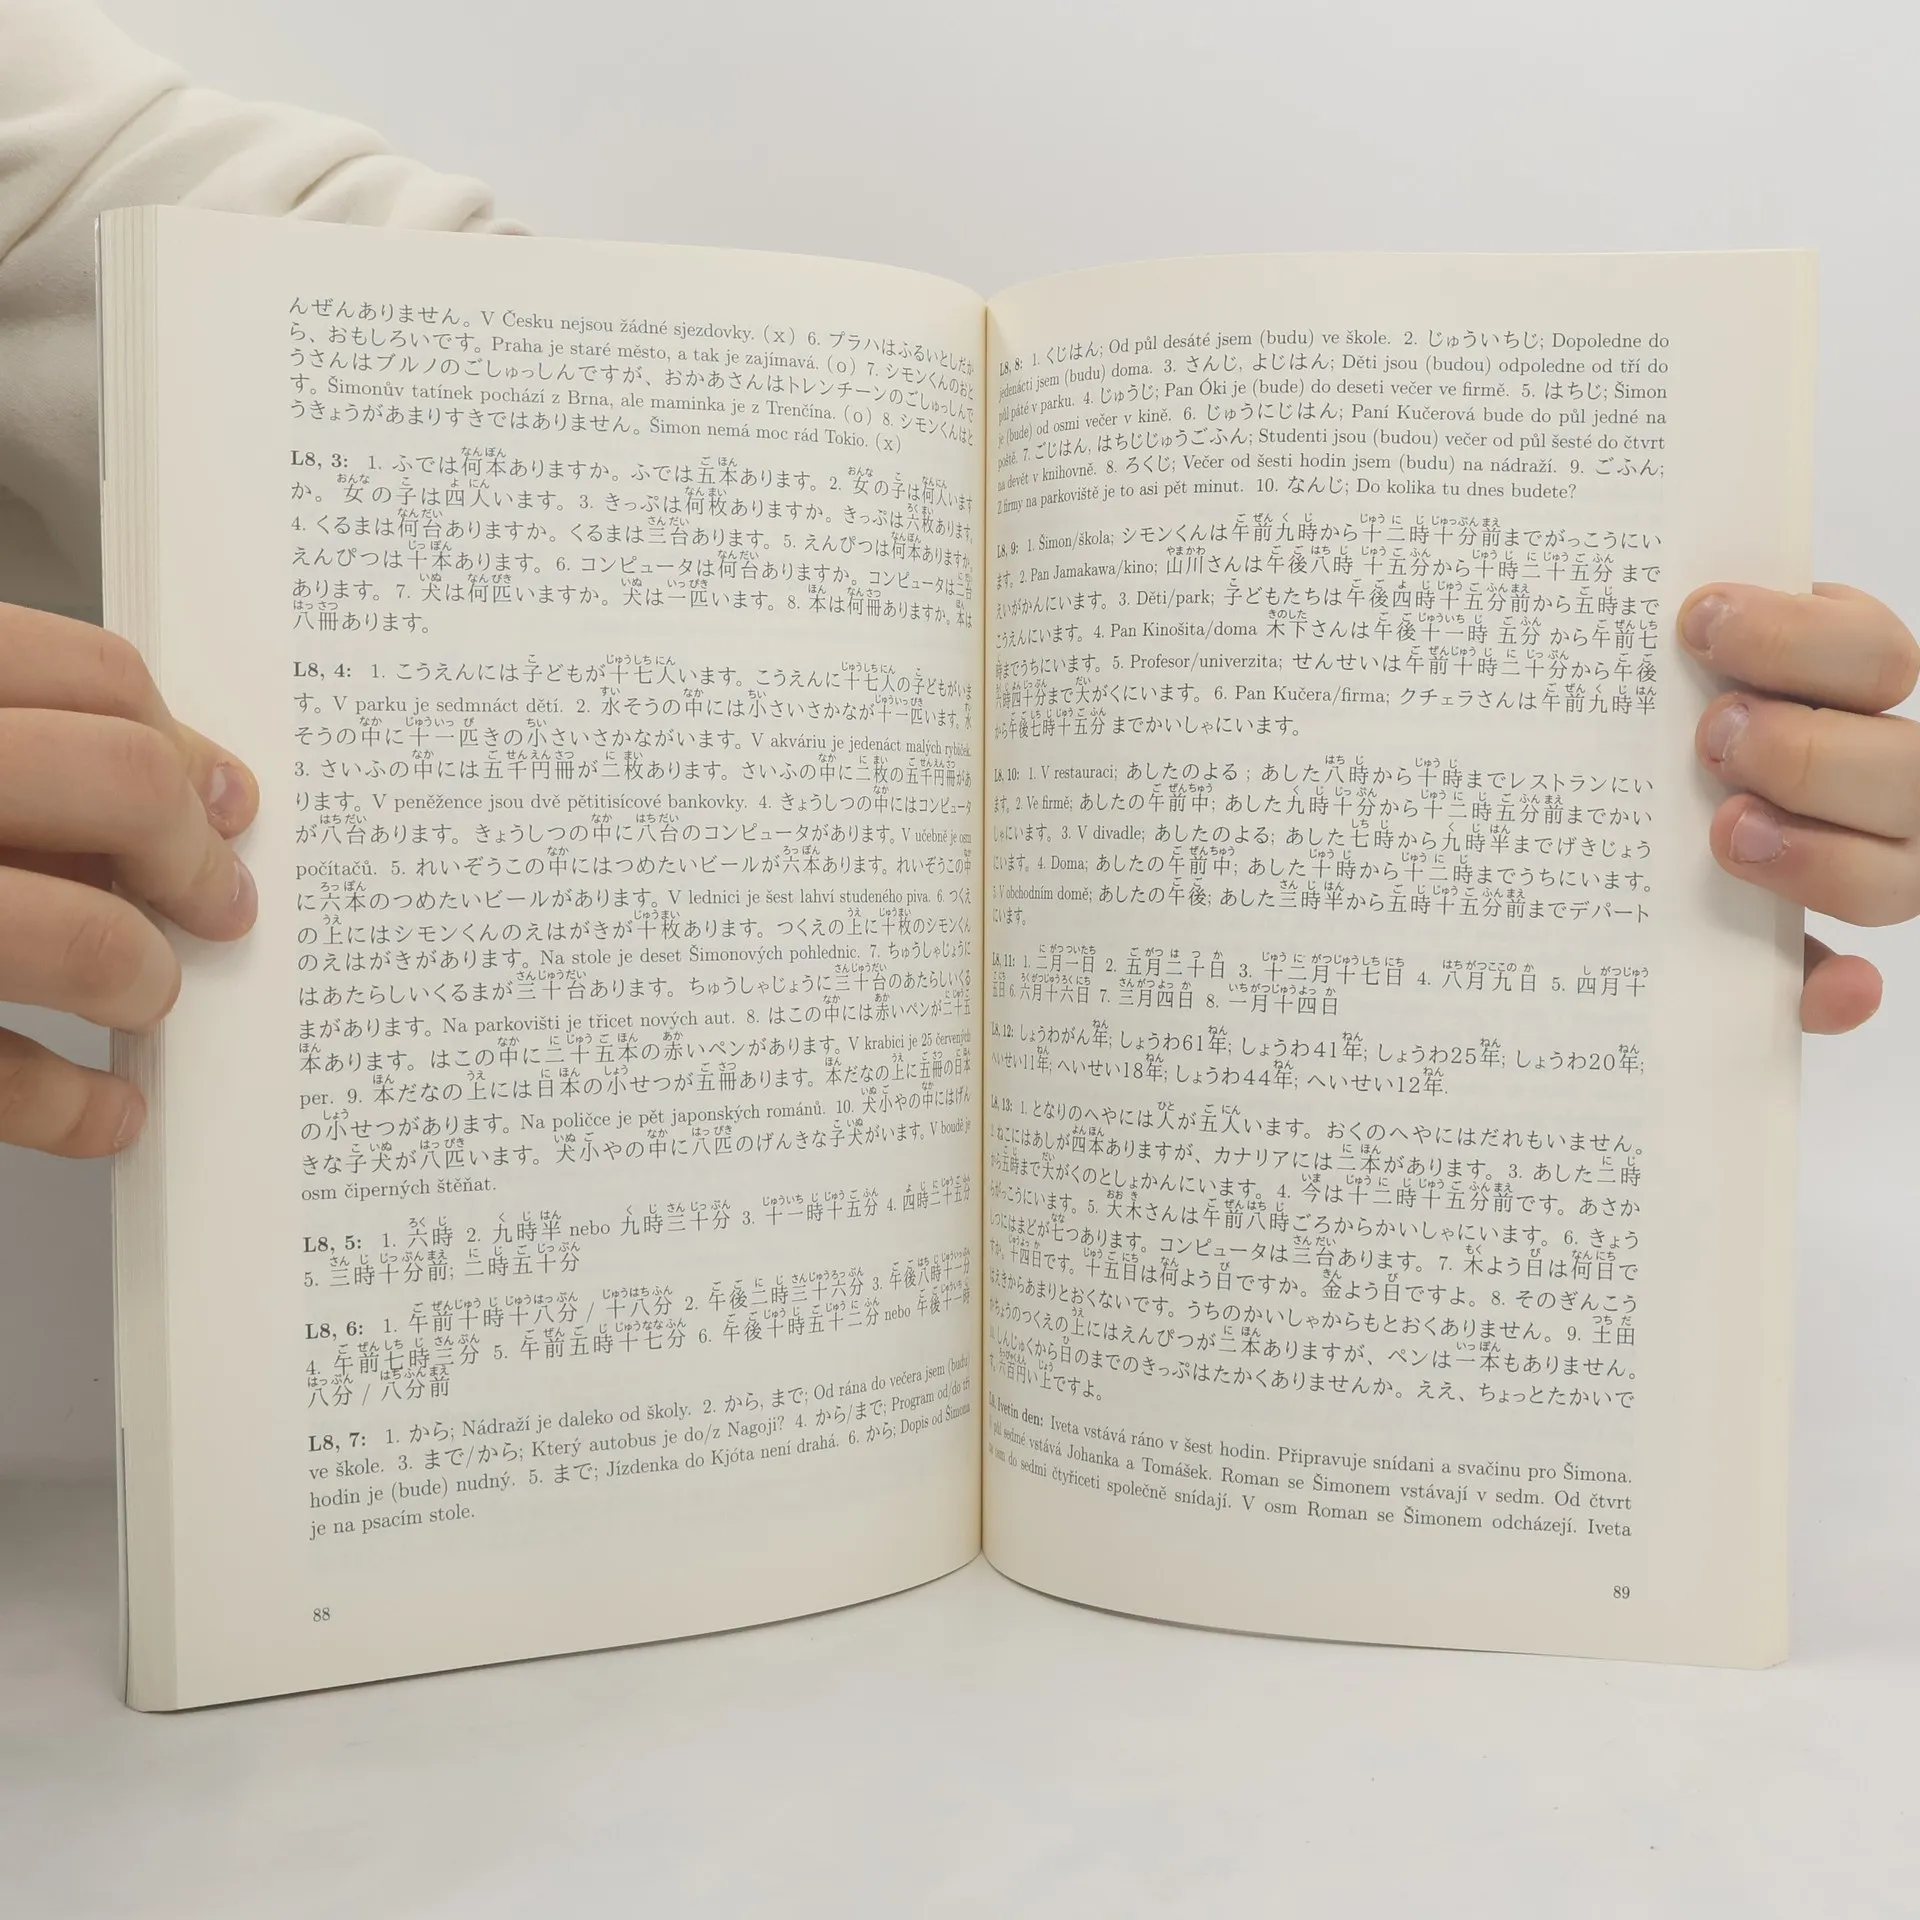 んぜんありません。V Česku nejsou žádné sjezdovky. (x) 6. プラハはふるいとしだか
ら、おもしろいです。Praha je staré město, a tak je zajímavá. (o) 7. シモンくんのおと
うさんはブルノのごしゅっしんですが、おかあさんはトレンチーンのごしゅっしんで
す。Šimonův tatínek pochází z Brna, ale maminka je z Trenčína. (o) 8. シモンくんはと
うきょうがあまりすきではありません。Šimon nemá moc rád Tokio. (x)
L8, 3: 1. ふでは何本ありますか。ふでは五本あります。2. 女の子は何人います
か。女の子は四人います。3. きっぷは何枚ありますか。きっぷは六枚あります。
4. くるまは何台ありますか。くるまは三台あります。5. えんぴつは何本ありますか。
えんぴつは十本あります。6. コンピュータは何台ありますか。コンピュータは二台
あります。7. 犬は何匹いますか。犬は一匹います。8. 本は何冊ありますか。本は
八冊あります。
L8, 4: 1. こうえんには子どもが十七人います。こうえんに十七人の子どもがいま
す。V parku je sedmnáct dětí. 2. 水そうの中には小さいさかなが十一匹います。水
そうの中に十一匹きの小さいさかながいます。V akváriu je jedenáct malých rybiček.
3. さいふの中には五千円冊が二枚あります。さいふの中に二枚の五千円冊があ
ります。V peněžence jsou dvě pětitisícové bankovky. 4. きょうしつの中にはコンピュータ
が八台あります。きょうしつの中に八台のコンピュータがあります。V učebně je osm
počítačů. 5. れいぞうこの中にはつめたいビールが六本あります。れいぞうこの中
に六本のつめたいビールがあります。V lednici je šest lahví studeného piva. 6. つくえ
の上にはシモンくんのえはがきが十枚あります。つくえの上に十枚のシモンくん
のえはがきがあります。Na stole je deset Šimonových pohlednic. 7. ちゅうしゃじょうに
はあたらしいくるまが三十台あります。ちゅうしゃじょうに三十台のあたらしいくる
まがあります。Na parkovišti je třicet nových aut. 8. はこの中には赤いペンが二十五
本あります。はこの中に二十五本の赤いペンがあります。V krabici je 25 červených
per. 9. 本だなの上には日本の小せつが五冊あります。本だなの上に五冊の日本
の小せつがあります。Na poličce je pět japonských románů. 10. 犬小やの中にはげん
きな子犬が八匹います。犬小やの中に八匹のげんきな子犬がいます。V boudě je
osm čiperných štěňat.
L8, 5: 1. 六時 2. 九時半 nebo 九時三十分 3. 十一時十五分 4. 四時二十五分
5. 三時十分前; 二時五十分
L8, 6: 1. 午前十時十八分 / 十八分 2. 午後二時三十六分 3. 午後八時十一分
4. 午前七時三分 5. 午前五時十七分 6. 午後十時五十二分 nebo 午後十一時
八分 / 八分前
L8, 7: 1. から; Nádraží je daleko od školy. 2. から, まで; Od rána do večera jsem (budu)
ve škole. 3. まで/から; Který autobus je do/z Nagoji? 4. から/まで; Program od/do tří
hodin je (bude) nudný. 5. まで; Jízdenka do Kjóta není drahá. 6. から; Dopis od Šimona
je na psacím stole.
88
L8, 8: 1. くじはん; Od půl desáté jsem (budu) ve škole. 2. じゅういちじ; Dopoledne do
jedenácti jsem (budu) doma. 3. さんじ, よじはん; Děti jsou (budou) odpoledne od tří do
půl páté v parku. 4. じゅうじ; Pan Óki je (bude) do deseti večer ve firmě. 5. はちじ; Šimon
je (bude) od osmi večer v kině. 6. じゅうにじはん; Paní Kučerová bude do půl jedné na
poště. 7. ごじはん, はちじじゅうごふん; Studenti jsou (budou) večer od půl šesté do čtvrt
na devět v knihovně. 8. ろくじ; Večer od šesti hodin jsem (budu) na nádraží. 9. ごふん;
Z firmy na parkoviště je to asi pět minut. 10. なんじ; Do kolika tu dnes budete?
L8, 9: 1. Šimon/škola; シモンくんは午前九時から十二時十分前までがっこうにい
ます。2. Pan Jamakawa/kino; 山川さんは午後八時十五分から十時二十五分 まで
えいがかんにいます。3. Děti/park; 子どもたちは午後四時十五分前から五時まで
こうえんにいます。4. Pan Kinošita/doma 木下さんは午後十一時五分 から午前七
時までうちにいます。5. Profesor/univerzita; せんせいは午前十時二十分から午後
六時四十分まで大がくにいます。6. Pan Kučera/firma; クチェラさんは午前九時半
から午後七時十五分 までかいしゃにいます。
L8, 10: 1. V restauraci; あしたのよる ; あした八時から十時までレストランにい
ます。2. Ve firmě; あしたの午前中; あした九時十分から十二時五分前までかい
しゃにいます。3. V divadle; あしたのよる; あした七時から九時半までげきじょう
にいます。4. Doma; あしたの午前中; あした十時から十二時までうちにいます。
5. V obchodním domě; あしたの午後; あした三時半から五時十五分前までデパート
にいます。
L8, 11: 1. 二月一日 2. 五月二十日 3. 十二月十七日 4. 八月九日 5. 四月十
五日 6. 六月十六日 7. 三月四日 8. 一月十四日
L8, 12: しょうわがん年; しょうわ61年; しょうわ41年; しょうわ25年; しょうわ20年;
へいせい11年; へいせい18年; しょうわ44年; へいせい12年.
L8, 13: 1. となりのへやには人が五人います。おくのへやにはだれもいません。
2. ねこにはあしが四本ありますが、カナリアには二本があります。3. あした二時
から五時まで大がくのとしょかんにいます。4. 今は十二時十五分前です。あさか
らがっこうにいます。5. 大木さんは午前八時ごろからかいしゃにいます。6. きょう
しつにはまどが七つあります。コンピュータは三台あります。7. 木よう日は何日で
すか。十四日です。十五日は何よう日ですか。金よう日ですよ。8. そのぎんこう
はえきからあまりとおくないです。うちのかいしゃからもとおくありません。9. 土田
かちょうのつくえの上にはえんぴつが二本ありますが、ペンは一本もありません。
10. しんじゅくから日のまでのきっぷはたかくありませんか。ええ、ちょっとたかいで
す。六百円い上ですよ。
L8, Ivetin den: Iveta vstává ráno v šest hodin. Připravuje snídani a svačinu pro Šimona.
V půl sedmé vstává Johanka a Tomášek. Roman se Šimonem vstávají v sedm. Od čtvrt
do sedmi čtyřiceti společně snídají. V osm Roman se Šimonem odcházejí. Iveta
89